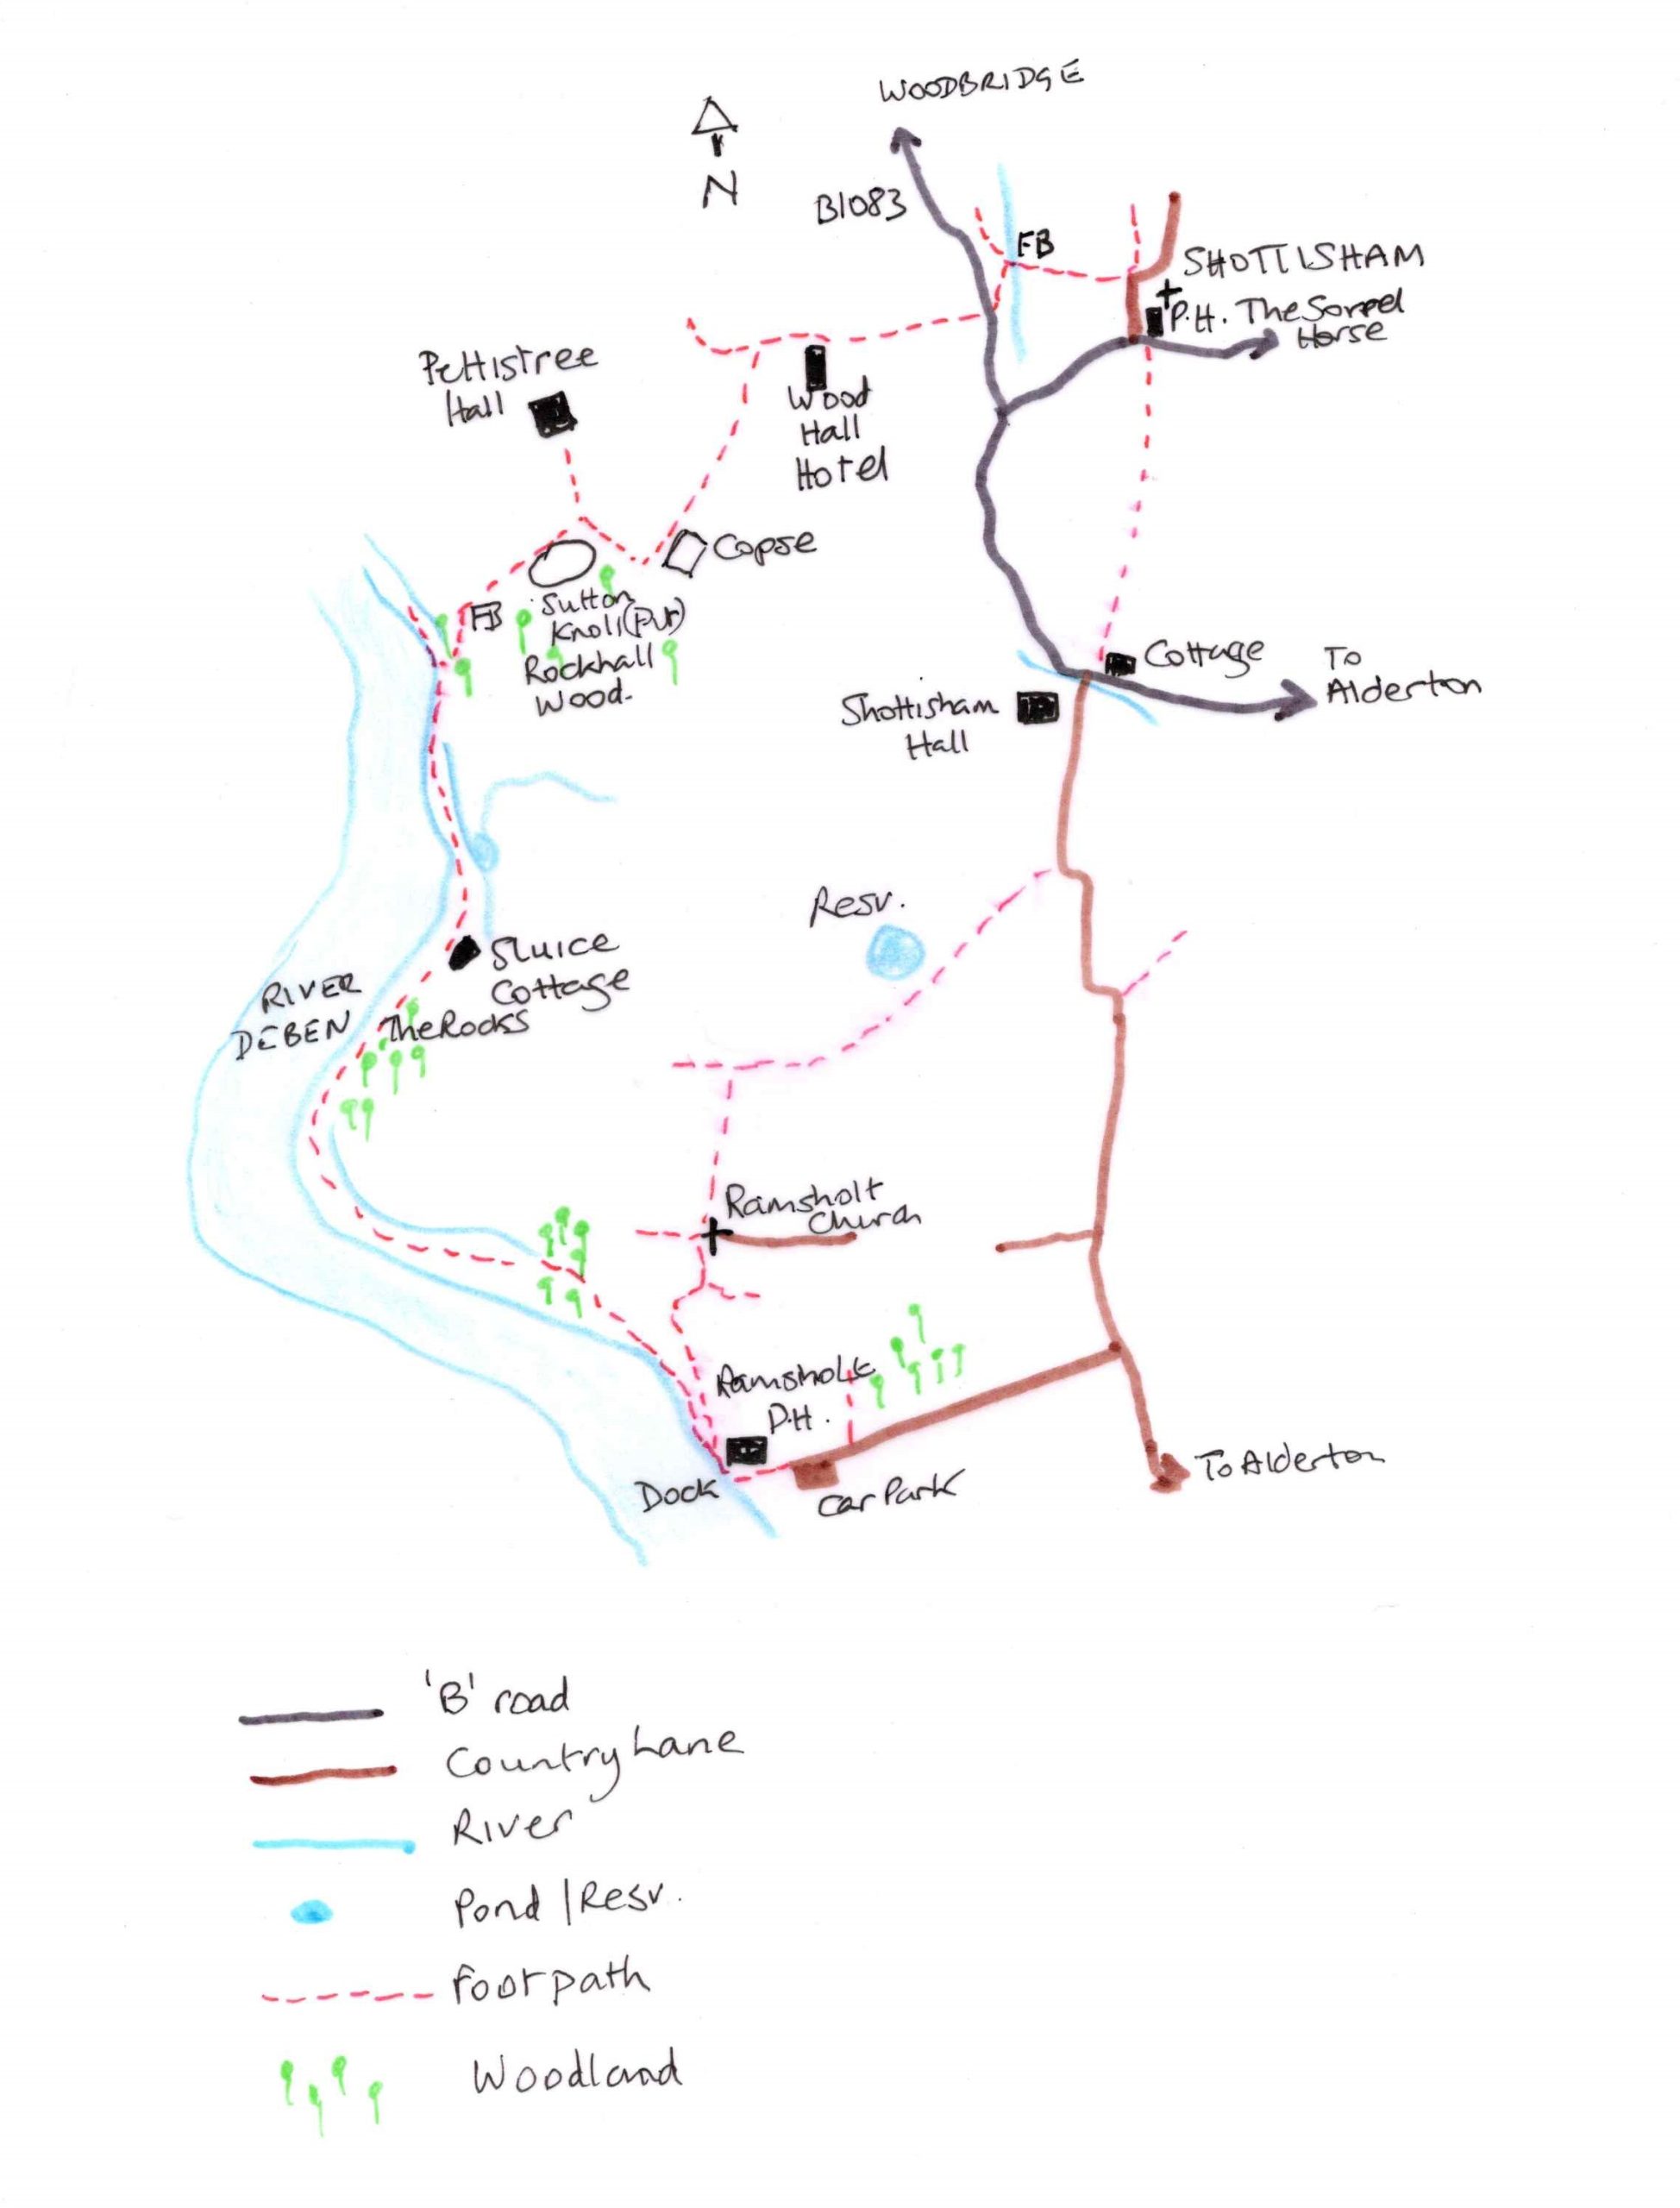 WOODBRIDGE
N
B1083
FB
SHOTTISHAM
P.H. The Sorrel
Horse
Pettistree
Hall
Wood
Hall
Hotel
Copse
FB
Sutton
Knoll (Pvt)
Rockhall
Wood.
Cottage
To
Alderton
Shottisham
Hall
Resv.
Sluice
Cottage
RIVER
DEBEN
The Rocks
Ramsholt
Church
Ramsholt
P.H.
Dock
Car Park
To Alderton
'B' road
Country Lane
River
Pond / Resv.
Footpath
Woodland